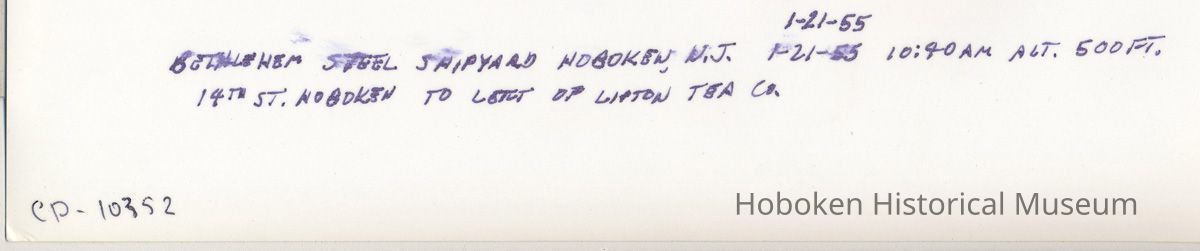 1-21-55
BETHLEHEM STEEL SHIPYARD HOBOKEN, N.J. 1-21-55 10:40AM ALT. 500FT.
14TH ST. HOBOKEN TO LEFT OF LIPTON TEA CO.
CP-10352
Hoboken Historical Museum